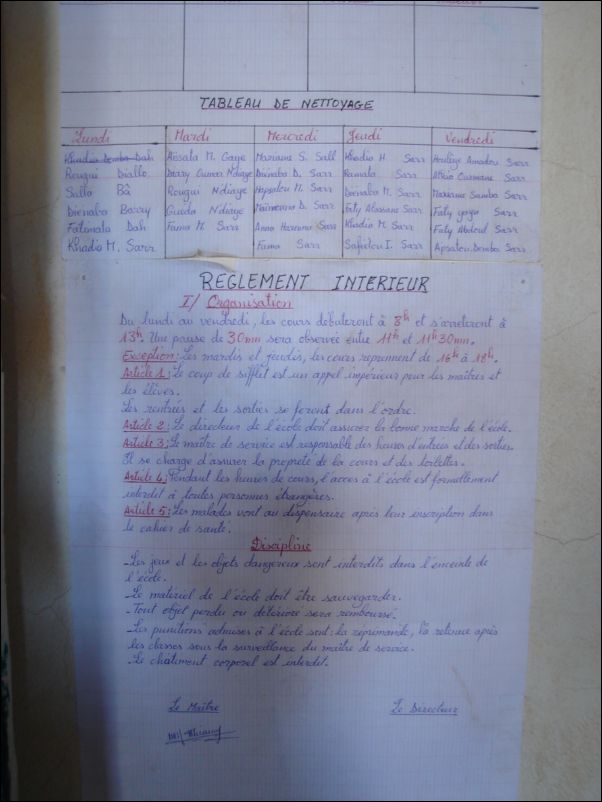 TABLEAU DE NETTOYAGE
Lundi Mardi Mercredi Jeudi Vendredi
Khadia Demba Dah Aïssata M. Gaye Mariame S. Sall Khadia H. Sarr Amadou Sarr
Rougui Diallo Oumar Ndiaye Dieinaba D. Sarr Ramata Sarr Ousmane Sarr
Salla Bâ Rougui Ndiaye Hapsatou M. Sarr Dieinaba M. Sarr Mariame Samba Sarr
Dieinaba Barry Gueda Ndiaye D. Sarr Faty Alassane Sarr Faty Sarr
Fatimata Dah Fama M. Sarr Sarr Khadia M. Sarr Faty Abdoul Sarr
Khadia M. Sarr Fama Sarr Safiétou I. Sarr Apsatou Demba Sarr
REGLEMENT INTERIEUR
I/ Organisation
Du lundi au vendredi, les cours débuteront à 8h et s'arrêteront à
13h. Une pause de 30mn sera observée entre 11h et 11h30mn.
Exception: Les mardis et jeudis, les cours reprennent de 16h à 18h.
Article 1: Le coup de sifflet est un appel impérieux pour les maîtres et
les élèves.
Les rentrées et les sorties se feront dans l'ordre.
Article 2: Le directeur de l'école doit assurer la bonne marche de l'école.
Article 3: Le maître de service est responsable des heures d'entrées et des sorties.
Il se charge d'assurer la propreté de la cour et des toilettes.
Article 4: Pendant les heures de cours, l'accès à l'école est formellement
interdit à toutes personnes étrangères.
Article 5: Les malades vont au dispensaire après leur inscription dans
le cahier de santé.
Discipline
- Les jeux et les objets dangereux sont interdits dans l'enceinte de
l'école.
- Le matériel de l'école doit être sauvegarder.
- Tout objet perdu ou détérioré sera remboursé.
- Les punitions admises à l'école sont: la réprimande, la retenue après
les classes sous la surveillance du maître de service.
- Le châtiment corporel est interdit.
Le Maître Le Directeur